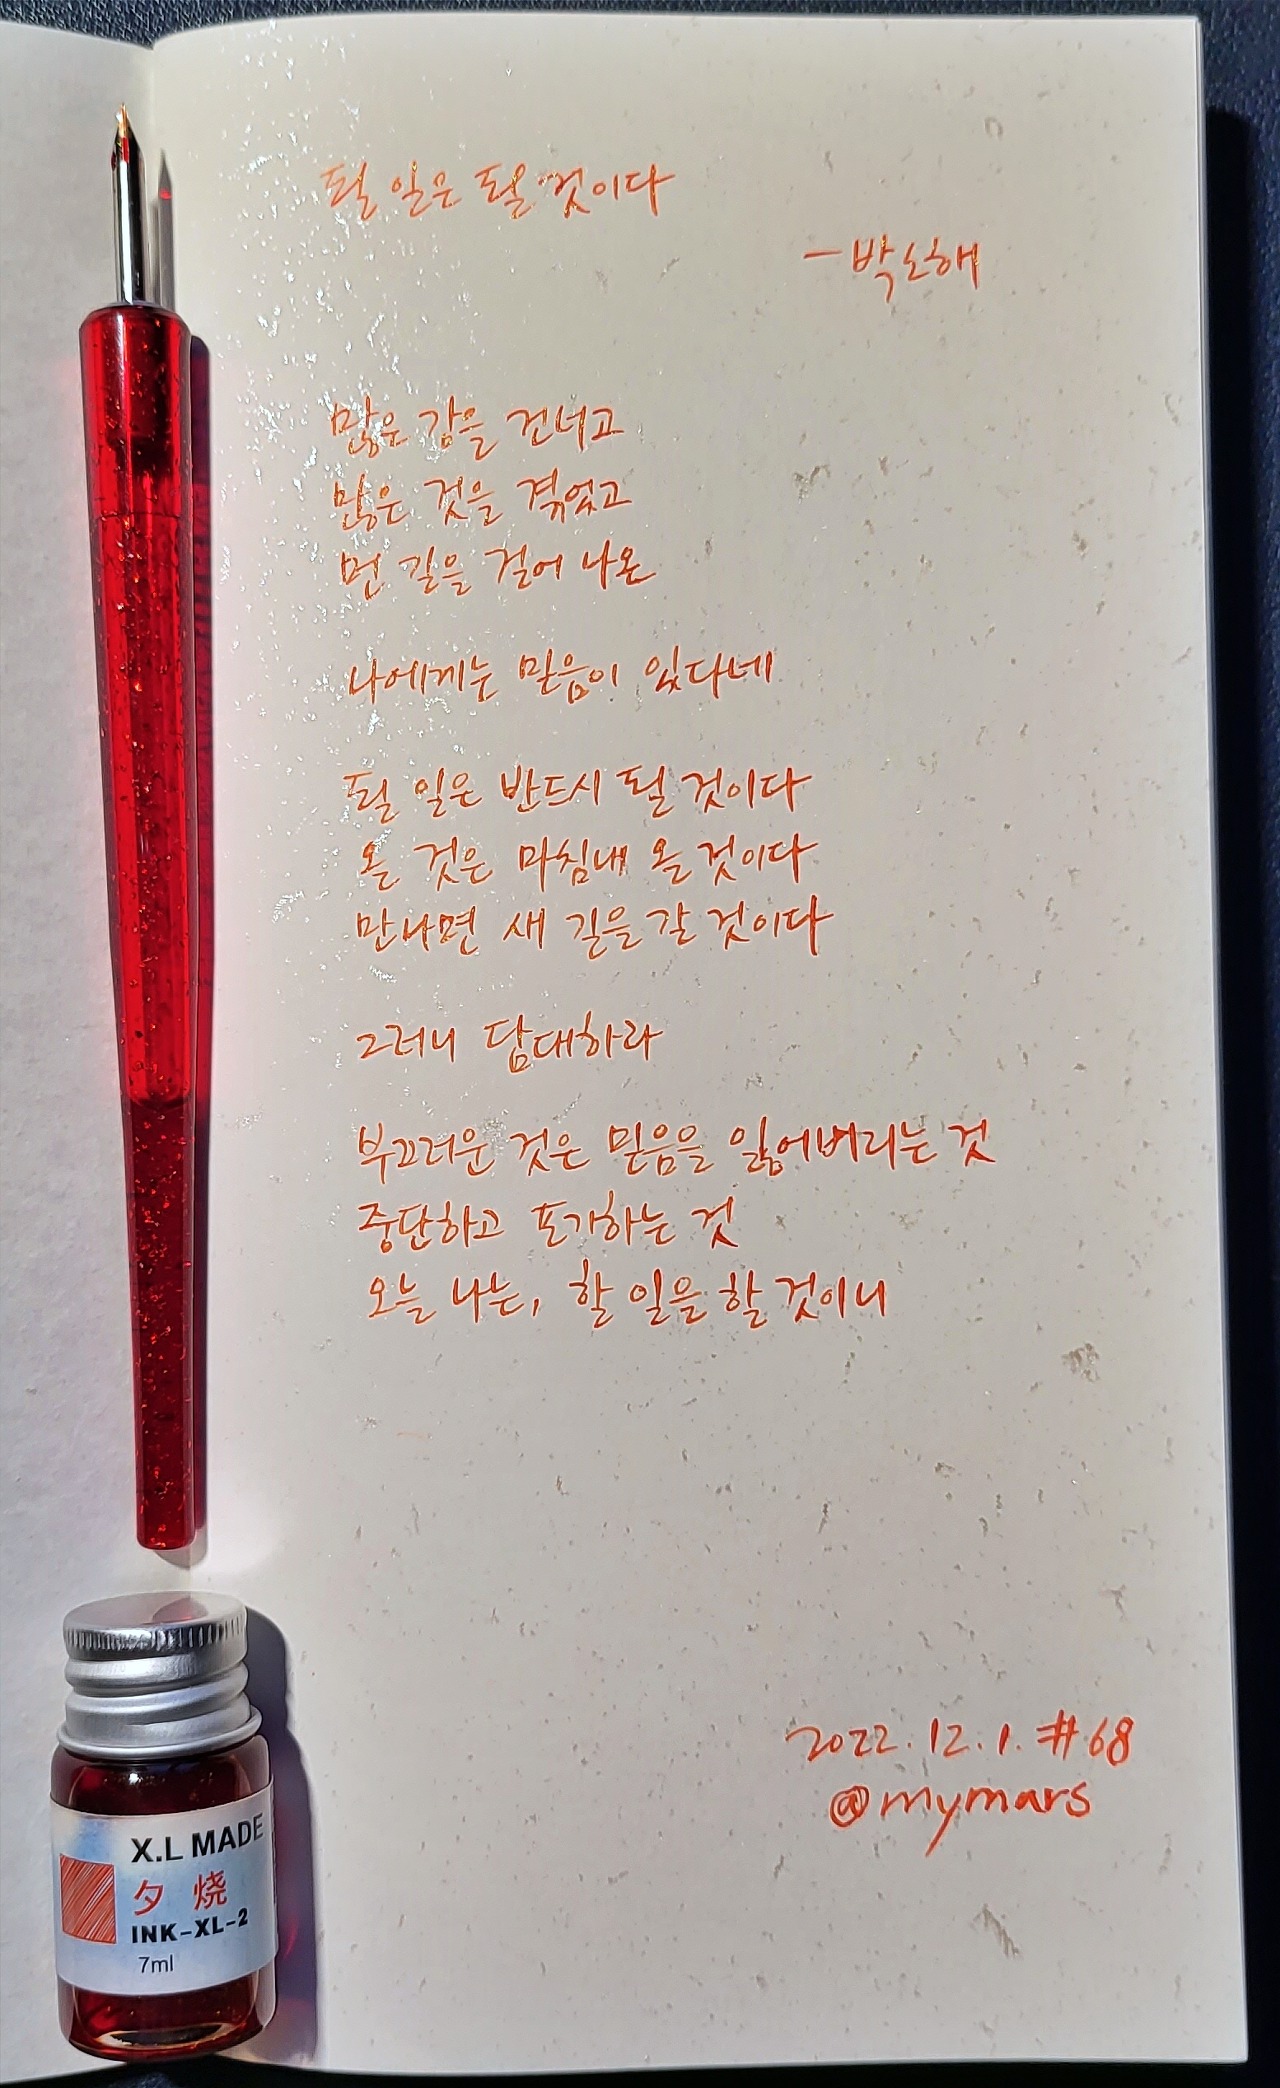 될 일은 될 것이다
- 박노해
많은 강을 건너고
많은 것을 겪었고
먼 길을 걸어 나온
나에게는 믿음이 있다네
될 일은 반드시 될 것이다
올 것은 마침내 올 것이다
만나면 새 길을 갈 것이다
그러니 담대하라
부끄러운 것은 믿음을 잃어버리는 것
중단하고 포기하는 것
오늘 나는, 할 일을 할 것이니
2022.12.1. #68
@mymars
X.L MADE
夕 烧
INK-XL-2
7ml